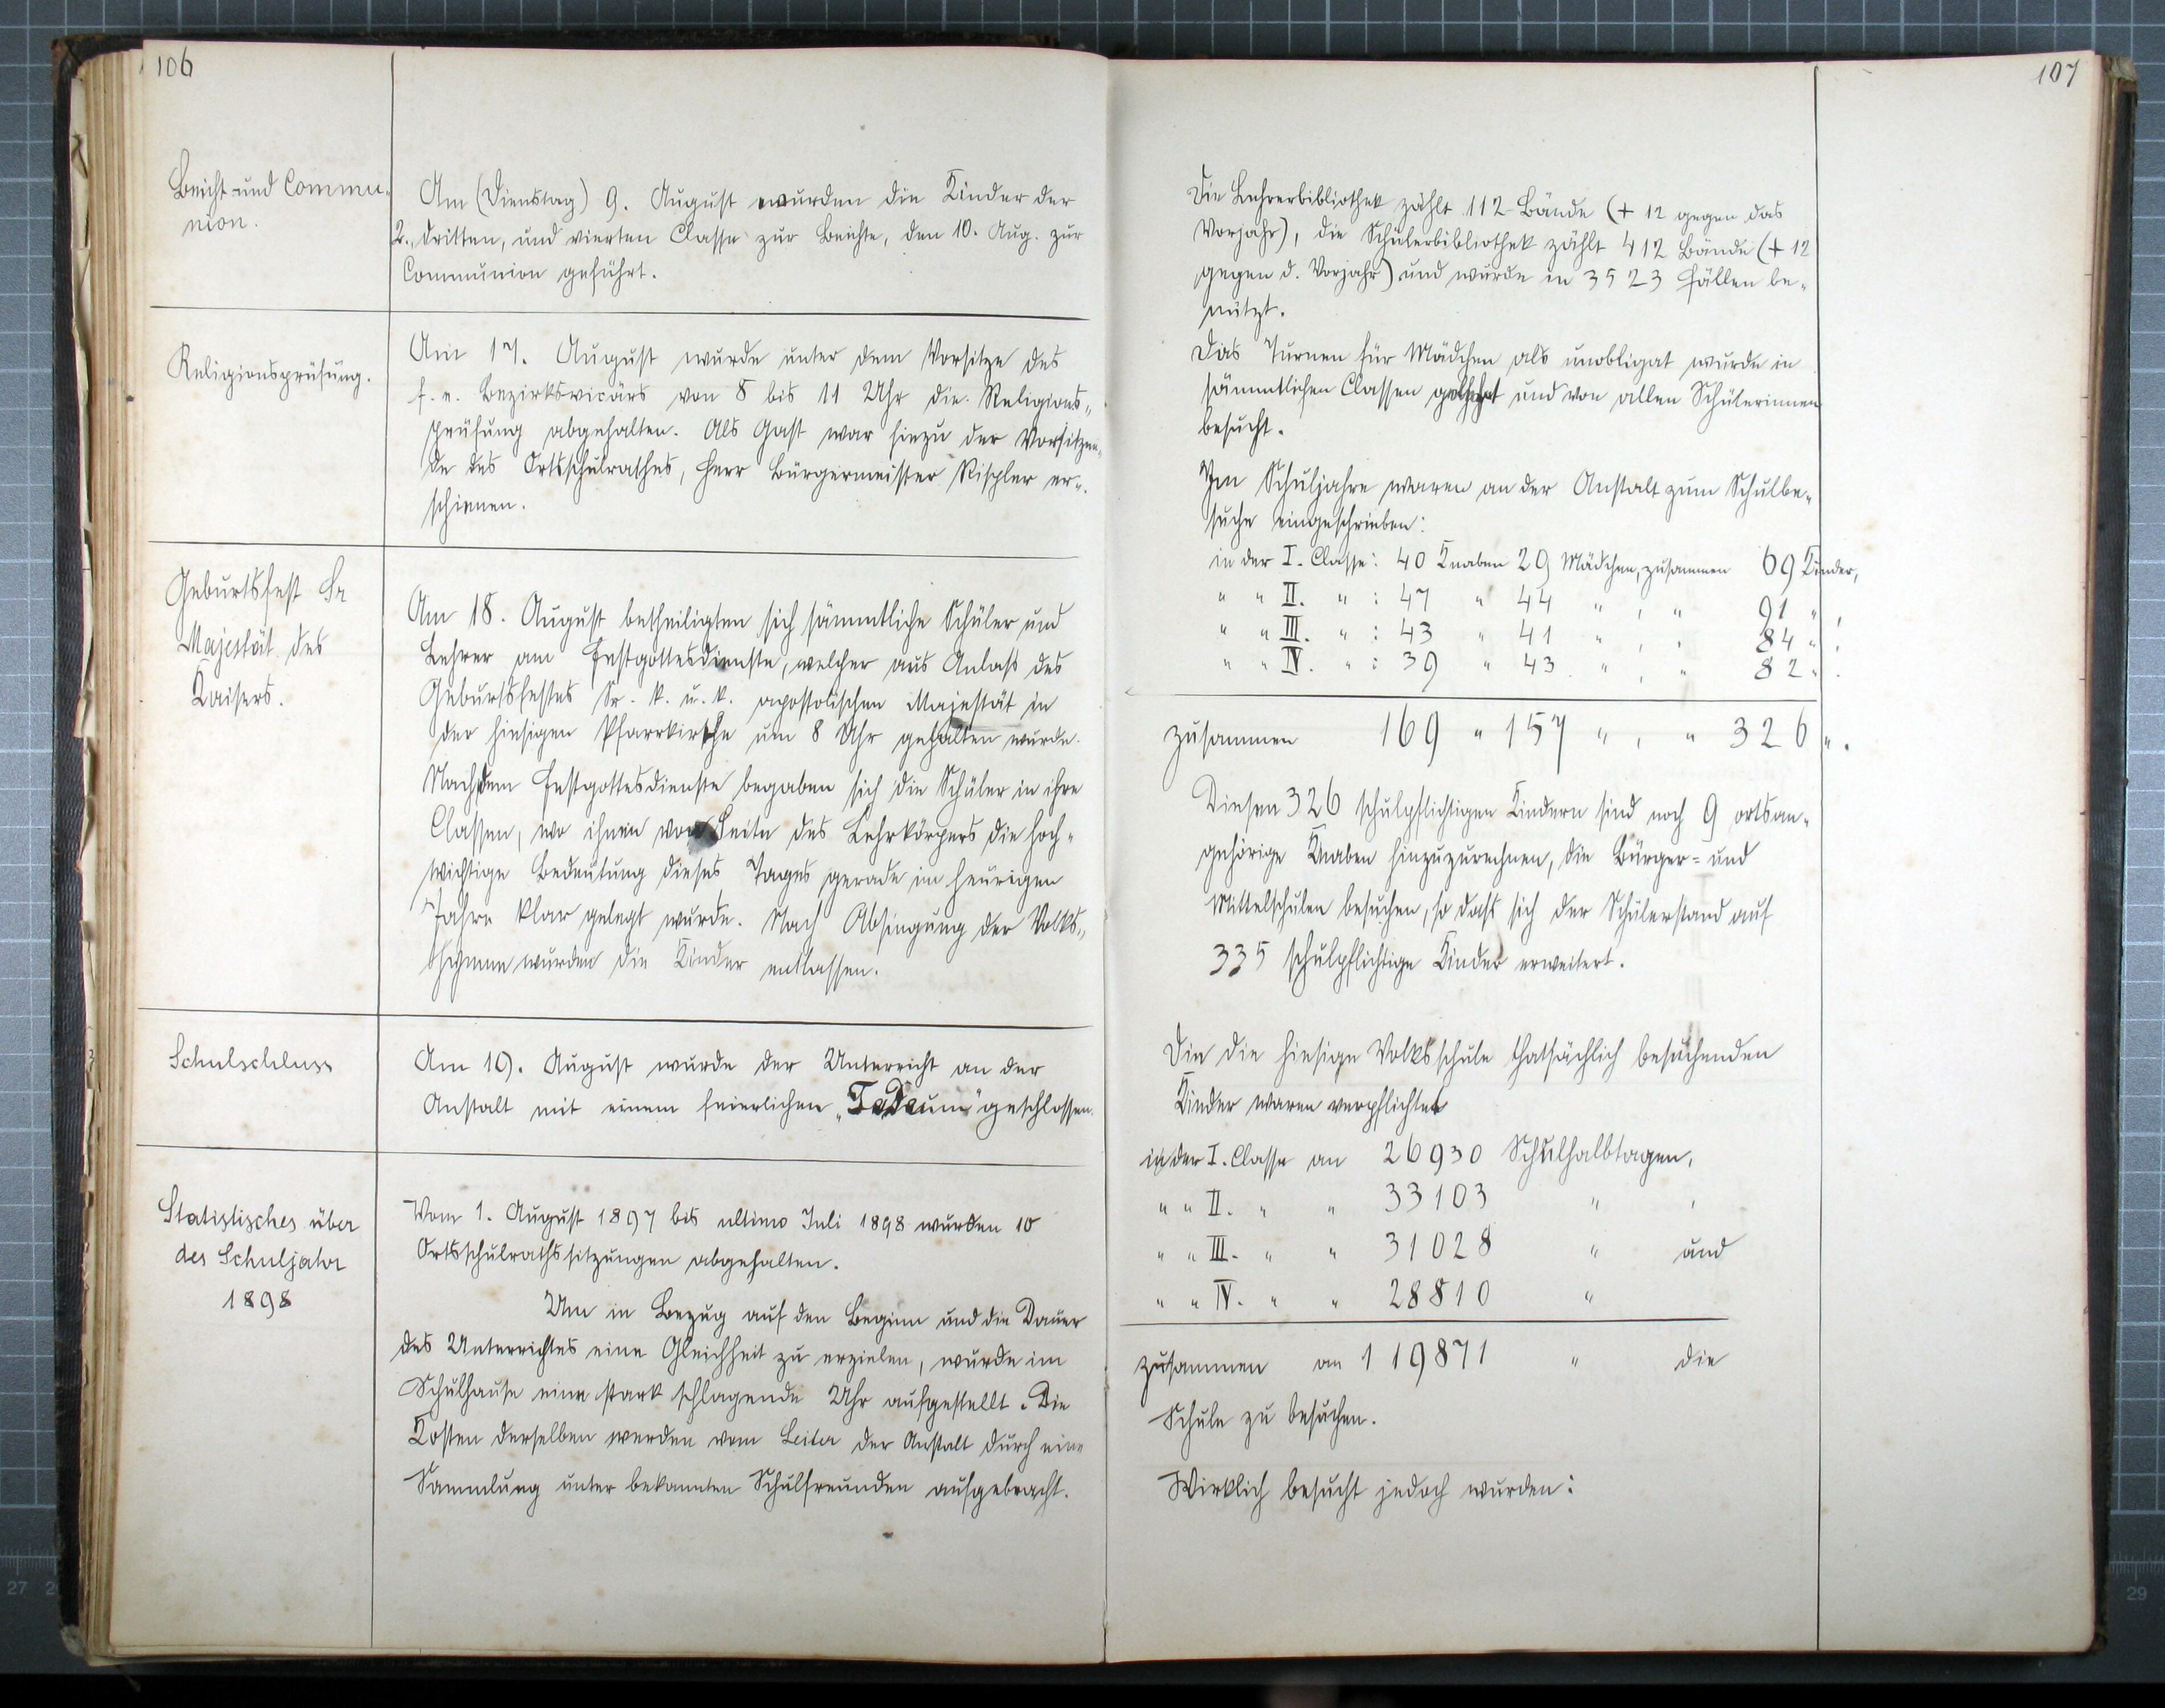 106
Beicht und Commu-
nion.
Am (Dienstag) 9. August wurden die Kinder der
2., dritten, und vierten Classe zur Beichte, den 10. Aug. zur
Communion geführt.
Religionsprüfung.
Am 17. August wurde unter dem Vorsitze des
f. e. Bezirksvicärs von 8 bis 11 Uhr die Religions-
prüfung abgehalten. Als Gast war hiezu der Vorsitzen-
de des Ortsschulrathes, Herr Bürgermeister er-
schienen.
Geburtsfest Sr
Majestät des
Kaisers.
Am 18. August betheiligten sich sämmtliche Schüler und
Lehrer am Festgottesdienste, welcher aus Anlaß des
Geburtsfestes Sr. k. u. k. apostolischen Majestät in
der hiesigen Pfarrkirche um 8 Uhr gehalten wurde.
Nach dem Festgottesdienste begaben sich die Schüler in ihre
Classen, wo ihnen von Seite des Lehrkörpers die hoch-
wichtige Bedeutung dieses Tages gerade im heurigen
Jahre klar gelegt wurde. Nach Absingung der Volks-
hymne wurden die Kinder entlassen.
Schulschluss
Am 19. August wurde der Unterricht an der
Anstalt mit einem feierlichen „TeDeum" geschlossen.
Statistisches über
des Schuljahr
1898
Vom 1. August 1897 bis ultimo Juli 1898 wurden 10
Ortsschulrathssitzungen abgehalten.
Um in Bezug auf den Beginn und die Dauer
des Unterrichtes eine Gleichheit zu erzielen, wurde im
Schulhause eine stark schlagende Uhr aufgestellt. Die
Kosten derselben werden vom Leiter der Anstalt durch eine
Sammlung unter bekannten Schulfreunden aufgebracht.
107
Die Lehrerbibliothek zählt 112 Bände (+ 12 gegen das
Vorjahr), die Schülerbibliothek zählt 412 Bände (+ 12
gegen d. Vorjahr) und wurde in 3523 Fällen be-
nützt.
Das Turnen für Mädchen als unobligat wurde in
sämmtlichen Classen gelehrt und von allen Schülerinnen
besucht.
Im Schuljahre waren an der Anstalt zum Schulbe-
suche eingeschrieben:
in der I. Classe: 40 Knaben 29 Mädchen, zusammen 69 Kinder,
" " II. " : 47 " 44 " , " 91 " ,
" " III. " : 43 " 41 " , " 84 " ,
" " IV. " : 39 " 43 " , " 82 " .
zusammen 169 " 157 " , " 326 " .
Diesen 326 schulpflichtigen Kindern sind noch 9 ortsan-
gehörige Knaben hinzuzurechnen, die Bürger= und
Mittelschulen besuchen, so daß sich der Schülerstand auf
335 schulpflichtige Kinder erweitert.
Die die hiesige Volksschule thatsächlich besuchenden
Kinder waren verpflichtet
in der I. Classe an 26930 Schulhalbtagen,
" " II. " " 33103 " ,
" " III. " " 31028 " und
" " IV. " " 28810 "
zusammen an 119871 " die
Schule zu besuchen.
Wirklich besucht jedoch wurden:
27
29